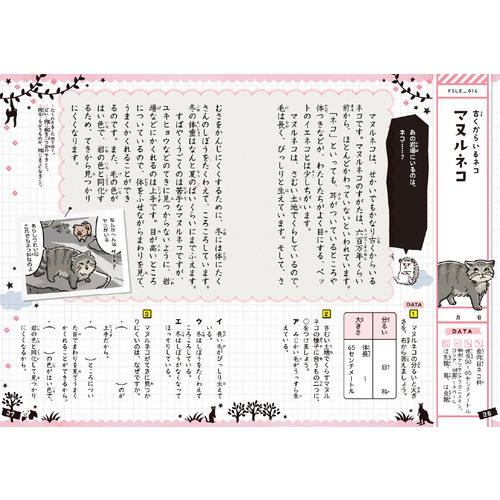 FILE_016
古くからいるネコ
マヌルネコ
月 日
DATA
食肉目ネコ科
体長50〜65センチメートル
あの岩場にいるのは、
ネコ……?
マヌルネコは、せかいでもかなり古くからいる
ネコです。マヌルネコのすがたは、六百万年くらい
前から、ほとんどかわっていないといわれています。
「ネコ」といっても、耳がついているところや
体つきなどが、わたしたちがよく目にする、ペッ
トのイエネコとは少しちがいます。
マヌルネコは、さむい土地でくらしているので、
毛は長く、びっしりと生えています。そして、さ
むさをかんじにくくするために、冬には体にたく
さんのしぼうをたくわえて、ころころしています。
冬の体重はなんと夏のばいくらいにまでふえます。
すばやくうごくのは苦手なマヌルネコですが、
ユキヒョウなどのてきに見つからないように、岩
場などにかくれるのは上手です。目が高いところ
についているので、体をふせながらまわりを見て、
うまくかくれることができ
るのです。また、毛の色が
はい色で、岩の色と同化す
るため、てきから見つかり
にくくなります。
DATA
1
マヌルネコの分るいと大き
さを、右から答えましょう。
分るい
目 科
大きさ
体長
〜
65センチメートル
2
さむい土地でくらすマヌル
ネコの様子に合うもの二つに、
○をつけましょう。
ア
みじかい毛がうっすら生
えている。
イ
長い毛がびっしり生えて
いる。
ウ
冬はしぼうをたくわえて
ころころしている。
エ
冬はしぼうがなくなって
ほっそりしている。
3
マヌルネコがてきに見つか
りにくいのは、なぜですか。
( )が
上手だから。
( )ところについ
た目でまわりを見てうまく
かくれることができるから。
( )の色がはい色で、
岩の色と同化して見つかり
にくくなるから。
36
37